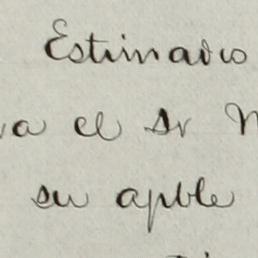 Estimado
el Sr
su apble